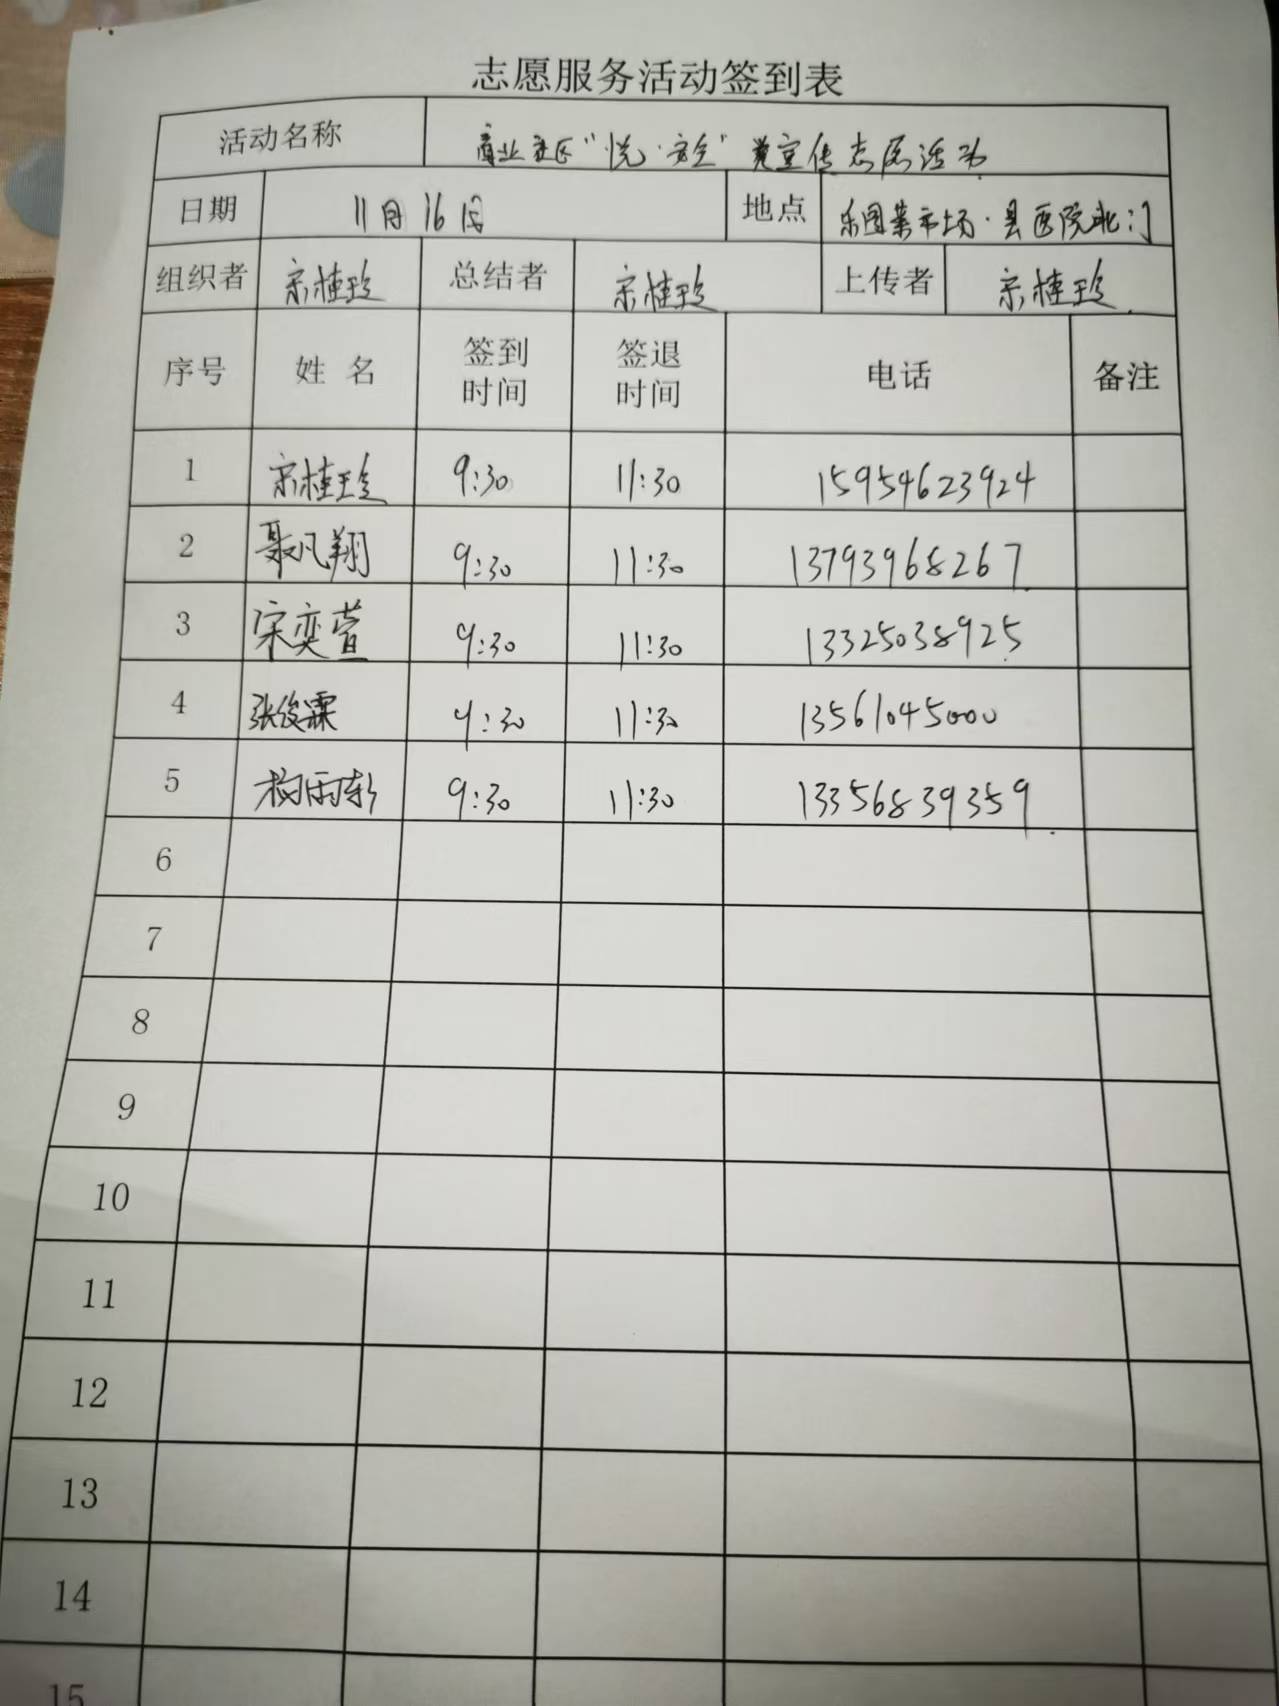 志愿服务活动签到表
活动名称 商业社区“悦·安全”宣传志愿活动
日期 11月16日 地点 乐园菜市场·县医院北门
组织者 宗桂玲 总结者 宗桂玲 上传者 宗桂玲
序号 姓名 签到时间 签退时间 电话 备注
1 宗桂玲 9:30 11:30 15954623924
2 聂凡翔 9:30 11:30 13793968267
3 宋奕萱 9:30 11:30 13325038925
4 张俊霖 9:30 11:30 13561045000
5 9:30 11:30 13356839359
6
7
8
9
10
11
12
13
14
15